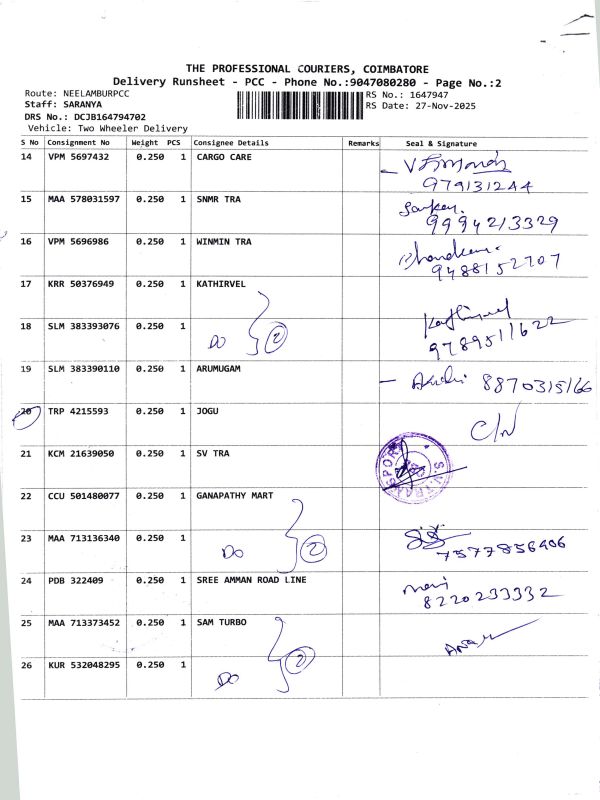 THE PROFESSIONAL COURIERS, COIMBATORE
Delivery Runsheet - PCC - Phone No.:9047080280 - Page No.:2
Route: NEELAMBURPCC
RS No.: 1647947
Staff: SARANYA
RS Date: 27-Nov-2025
DRS No.: DCJB164794702
Vehicle: Two Wheeler Delivery
S No Consignment No Weight PCS Consignee Details Remarks Seal & Signature
14 VPM 5697432 0.250 1 CARGO CARE
979131244
15 MAA 578031597 0.250 1 SNMR TRA
9994213329
16 VPM 5696986 0.250 1 WINMIN TRA
9488152707
17 KRR 50376949 0.250 1 KATHIRVEL
18 SLM 383393076 0.250 1 DO 2
9789511622
19 SLM 383390110 0.250 1 ARUMUGAM
8870315166
20 TRP 4215593 0.250 1 JOGU
21 KCM 21639050 0.250 1 SV TRA
S.V.TRANSPORT
22 CCU 501480077 0.250 1 GANAPATHY MART
23 MAA 713136340 0.250 1 DO 2
7577856406
24 PDB 322409 0.250 1 SREE AMMAN ROAD LINE
8220233332
25 MAA 713373452 0.250 1 SAM TURBO
26 KUR 532048295 0.250 1 DO 2